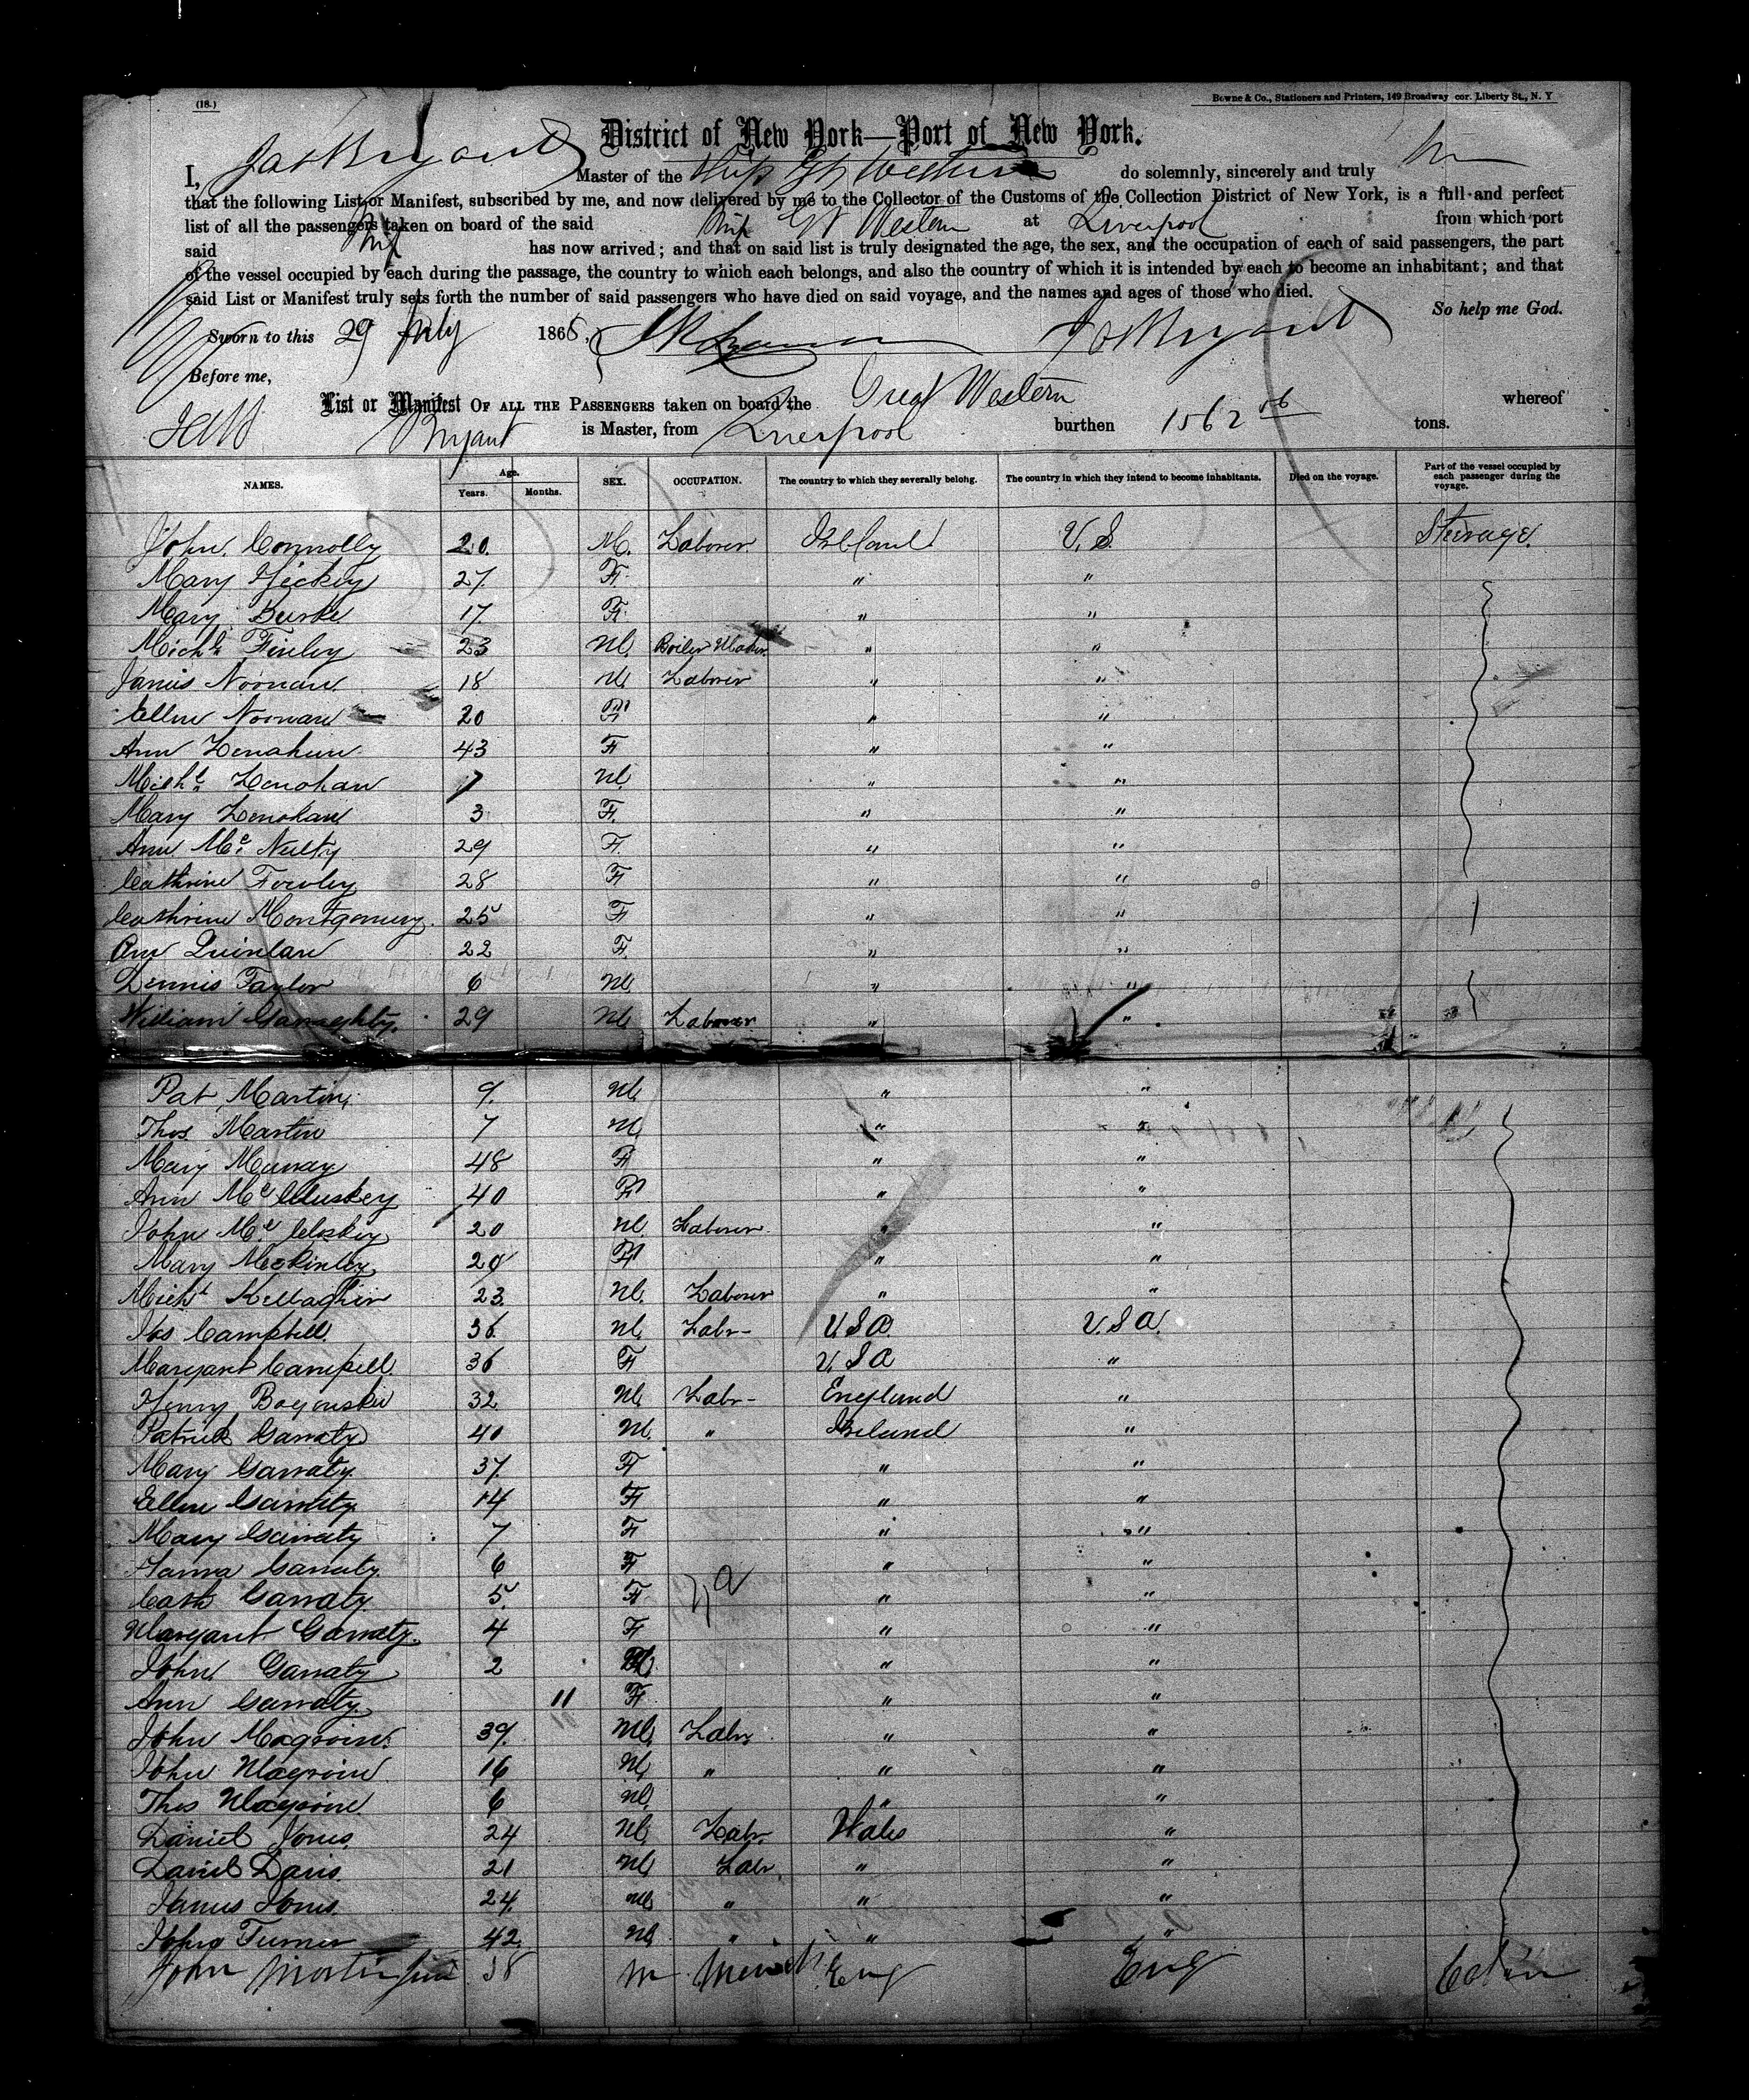 (18.)
Bowne & Co., Stationers and Printers, 149 Broadway cor. Liberty St., N. Y
District of New York—Port of New York.
I, Jas Bryant Master of the Ship Gt Western do solemnly, sincerely and truly
that the following List or Manifest, subscribed by me, and now delivered by me to the Collector of the Customs of the Collection District of New York, is a full and perfect
list of all the passengers taken on board of the said Ship Gt Western at Liverpool from which port
said Ship has now arrived; and that on said list is truly designated the age, the sex, and the occupation of each of said passengers, the part
of the vessel occupied by each during the passage, the country to which each belongs, and also the country of which it is intended by each to become an inhabitant; and that
said List or Manifest truly sets forth the number of said passengers who have died on said voyage, and the names and ages of those who died.
So help me God.
Sworn to this 29 July 1868, Jas Bryant
Before me,
List or Manifest OF ALL THE PASSENGERS taken on board the Great Western whereof
Jas Bryant is Master, from Liverpool burthen 1562 tons.
NAMES. Age. Years. Months. SEX. OCCUPATION. The country to which they severally belong. The country in which they intend to become inhabitants. Died on the voyage. Part of the vessel occupied by each passenger during the voyage.
John Connolly 20. M. Laborer Ireland U.S. Steerage
Mary Hickey 27. F. " "
Mary Burke 17. F. " "
Michl Finley 23 M. Boiler Maker " "
James Noonan 18 M. Laborer " "
Ellen Noonan 20 F " "
Ann Lenahan 43 F " "
Michl Lenohan 7 M. " "
Mary Lenohan 3 F. " "
Ann Mc Nulty 29 F. " "
Cathrine Fowley 28 F " "
Cathrine Montgomery. 25 F " "
Ann Quinlan 22 F. " "
Dennis Taylor 6 M " "
William Garraghty. 29 M Laborer " "
Pat Martin 9. M. " "
Thos Martin 7 M. " "
Mary Murray 48 F " "
Ann Mc Cluskey 40 F " "
John Mc Closkey 20 M. Laborer " "
Mary McKinley 20 F " "
Michl Kellaghir 23. M. Laborer " "
Jos Campbell. 36 M. Labr- U.S.A. U.S.A.
Margaret Campbell. 36 F U.S.A "
Henry 32 M. Labr- England "
Patrick Garraty 40 M. " Ireland "
Mary Garraty 37. F " "
Ellen Garraty 14 F " "
Mary Garraty 7 F " "
Hanna Garraty 6 F " "
Cath Garraty 5. F " "
Margaret Garraty. 4 F " "
John Garraty 2 M. " "
Ann Garraty 11 F " "
John Magroin 39. M. Labr " "
John Magroin 16 M. " " "
Thos Magroin 6 M. " "
Daniel Jones. 24 M. Labr. Wales "
David Davis. 21 M. Labr " "
James Jones. 24. M. " " "
John Turner 42 M. " " "
John 38 M Eng Eng Cabin